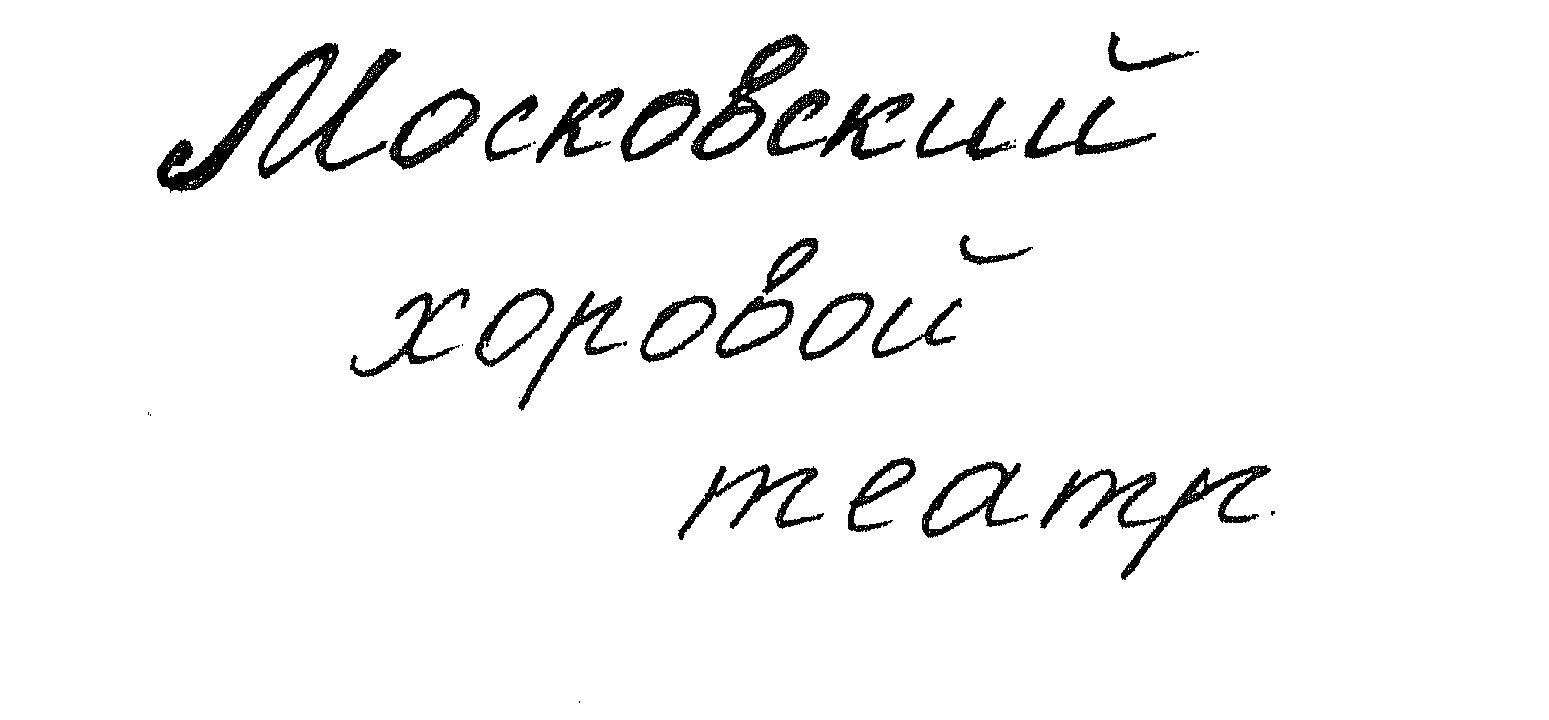 Московский
хоровой
театр